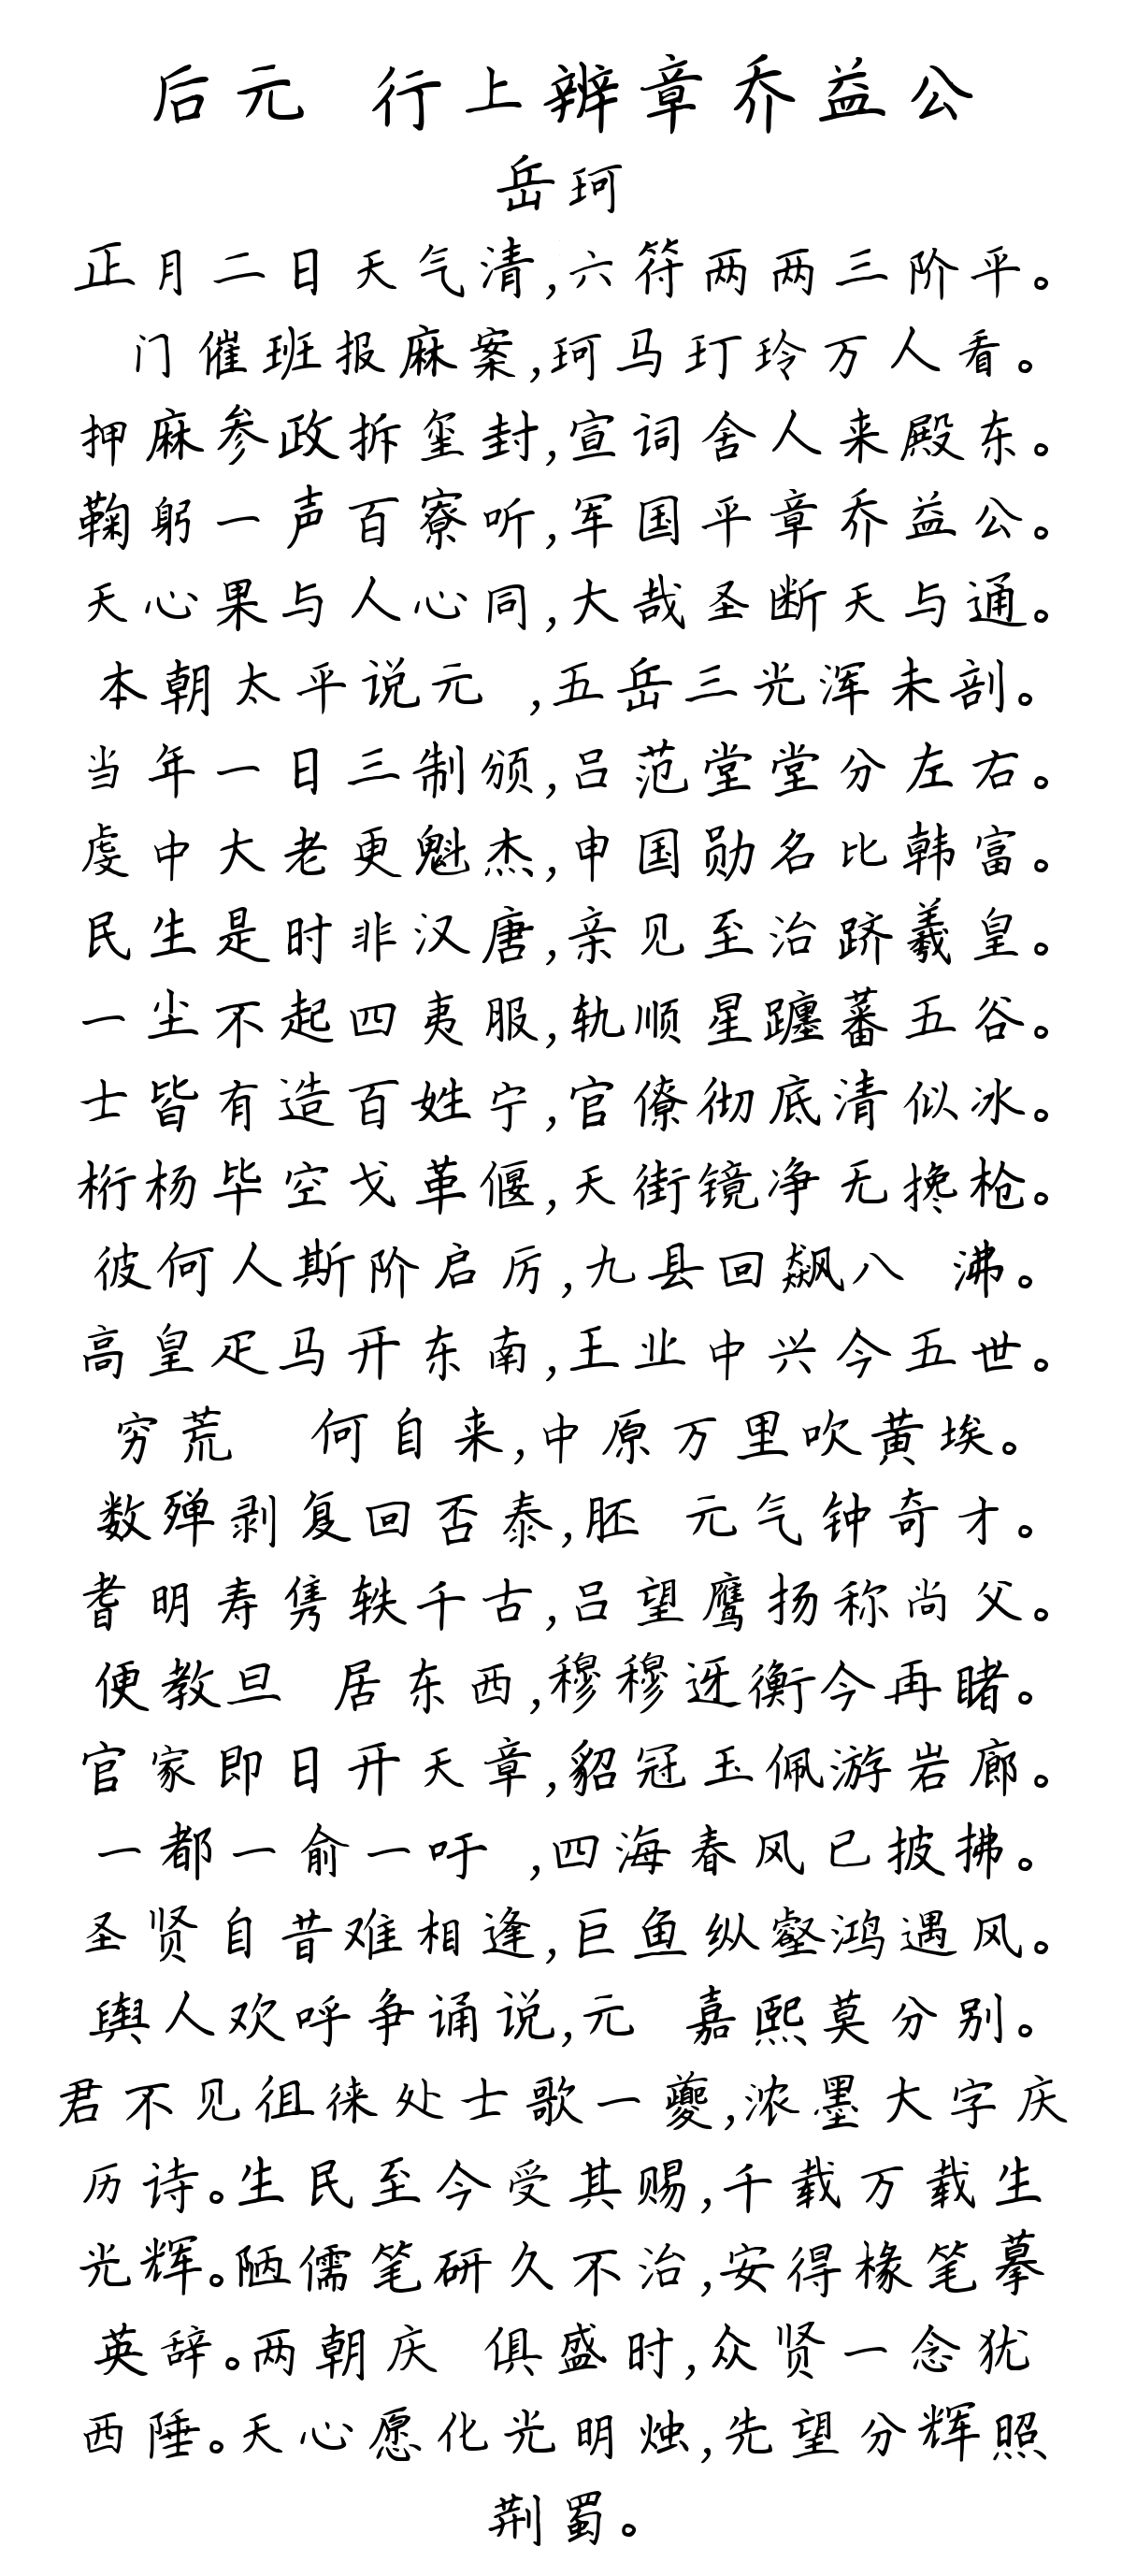 后元 行上辨章乔益公
岳珂
正月二日天气清,六符两两三阶平。
门催班报麻案,珂马玎玲万人看。
押麻参政拆玺封,宣词舍人来殿东。
鞠躬一声百寮听,军国平章乔益公。
天心果与人心同,大哉圣断天与通。
本朝太平说元 ,五岳三光浑未剖。
当年一日三制颁,吕范堂堂分左右。
虔中大老更魁杰,申国勋名比韩富。
民生是时非汉唐,亲见至治跻羲皇。
一尘不起四夷服,轨顺星躔蕃五谷。
士皆有造百姓宁,官僚彻底清似冰。
桁杨毕空戈革偃,天街镜净无搀枪。
彼何人斯阶启厉,九县回飙八 沸。
高皇疋马开东南,王业中兴今五世。
穷荒 何自来,中原万里吹黄埃。
数殚剥复回否泰,胚 元气钟奇才。
耆明寿隽轶千古,吕望鹰扬称尚父。
便教旦 居东西,穆穆迓衡今再睹。
官家即日开天章,貂冠玉佩游岩廊。
一都一俞一吁 ,四海春风已披拂。
圣贤自昔难相逢,巨鱼纵壑鸿遇风。
舆人欢呼争诵说,元 嘉熙莫分别。
君不见徂徕处士歌一夔,浓墨大字庆
历诗。生民至今受其赐,千载万载生
光辉。陋儒笔研久不治,安得椽笔摹
英辞。两朝庆 俱盛时,众贤一念犹
西陲。天心愿化光明烛,先望分辉照
荆蜀。